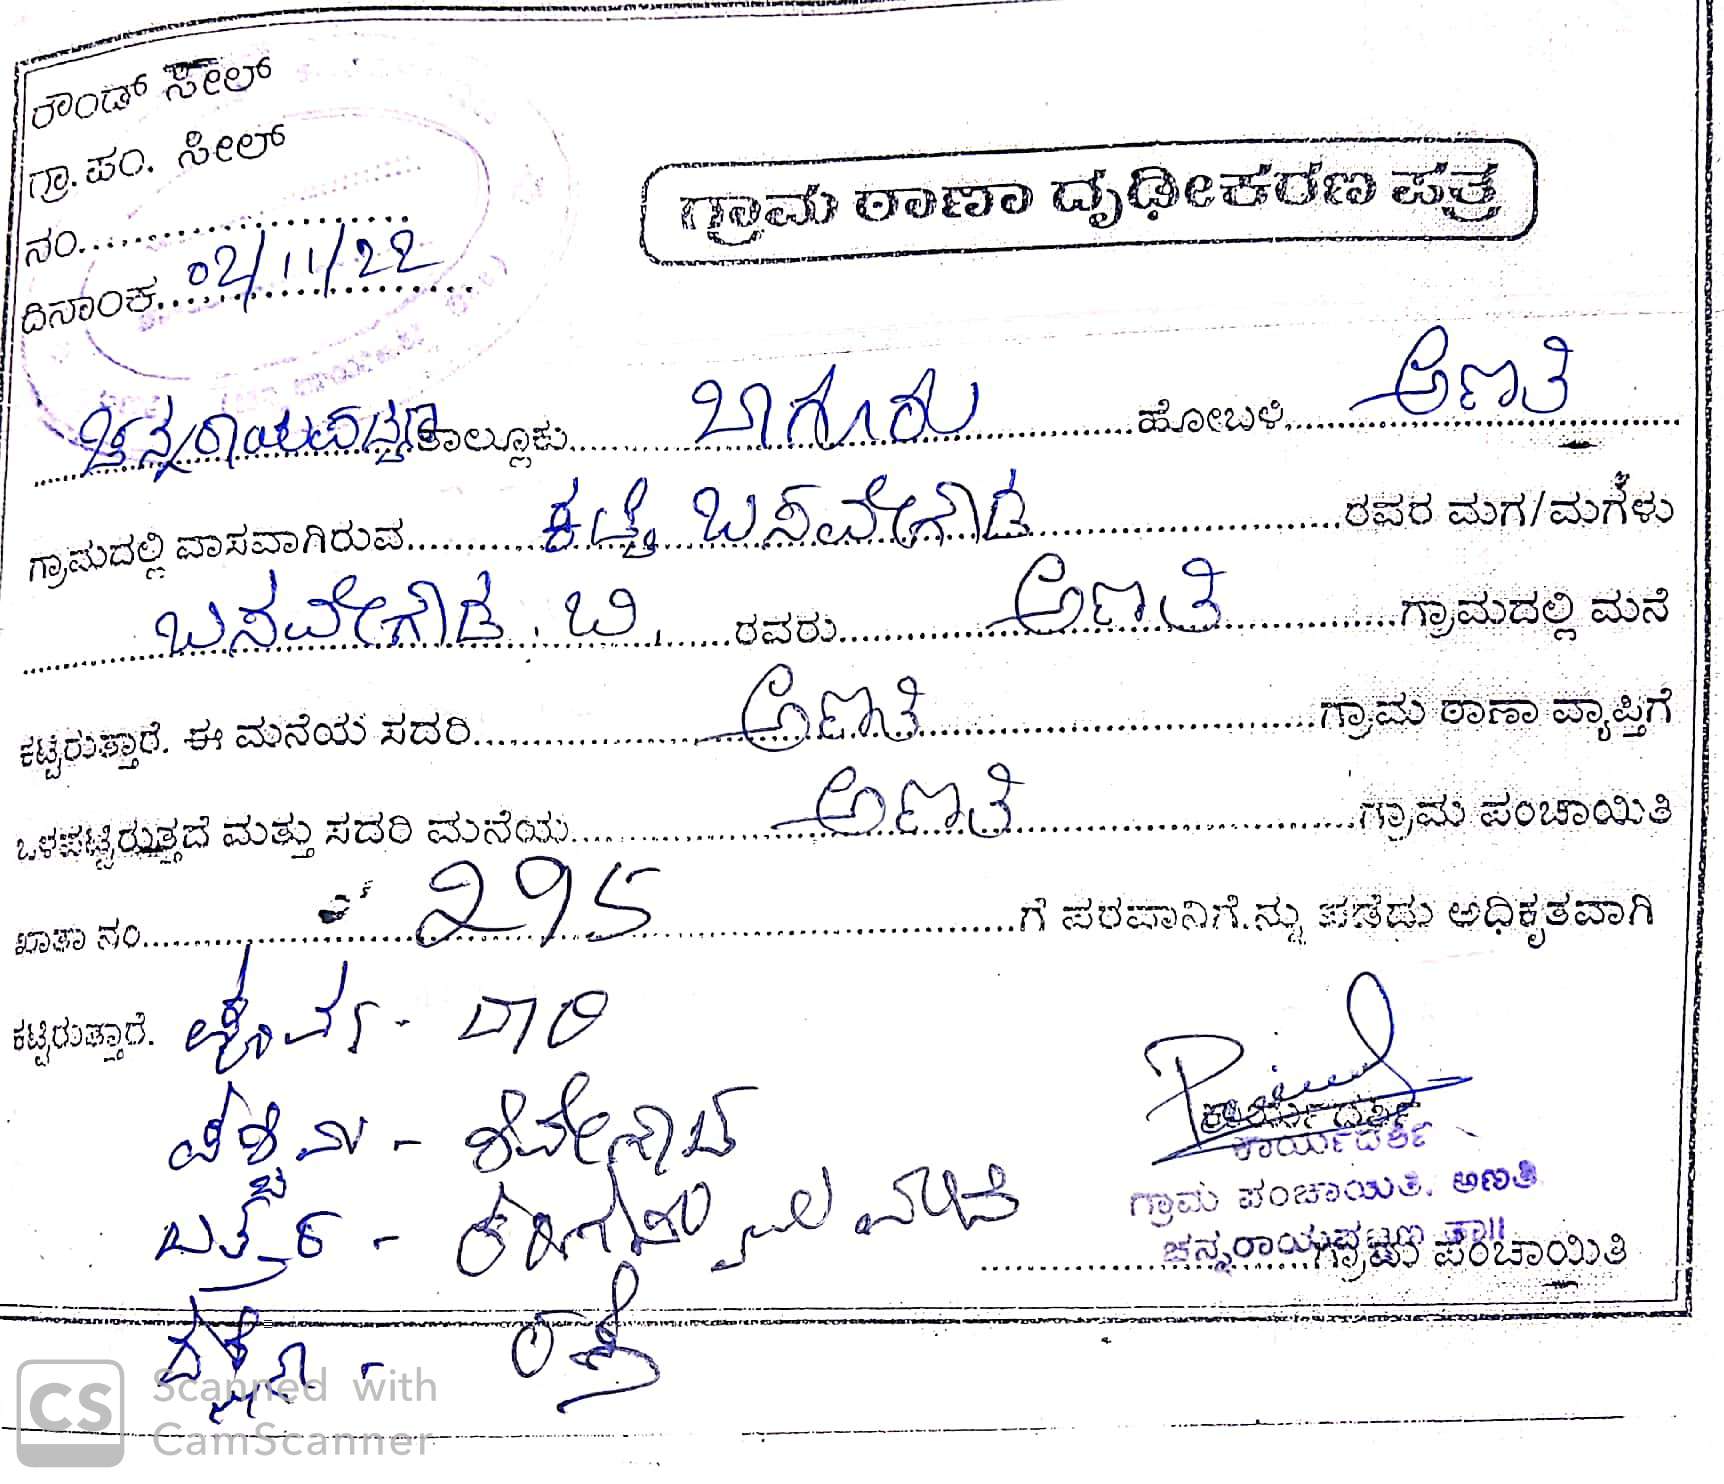 ರೌಂಡ್ ಸೀಲ್
ಗ್ರಾ.ಪಂ. ಸೀಲ್
ನಂ....................
ದಿನಾಂಕ 02/11/22
ಗ್ರಾಮ ಠಾಣಾ ದೃಢೀಕರಣ ಪತ್ರ
ಚನ್ನರಾಯಪಟ್ಟಣ ತಾಲ್ಲೂಕು ಬಾಗೂರು ಹೋಬಳಿ, ಅಣತಿ
ಗ್ರಾಮದಲ್ಲಿ ವಾಸವಾಗಿರುವ ಬಸವೇಗೌಡ ರವರ ಮಗ/ಮಗಳು
ಬಸವೇಗೌಡ . ಬಿ. ರವರು ಅಣತಿ ಗ್ರಾಮದಲ್ಲಿ ಮನೆ
ಕಟ್ಟಿರುತ್ತಾರೆ. ಈ ಮನೆಯ ಸದರಿ ಅಣತಿ ಗ್ರಾಮ ಠಾಣಾ ವ್ಯಾಪ್ತಿಗೆ
ಒಳಪಟ್ಟಿರುತ್ತದೆ ಮತ್ತು ಸದರಿ ಮನೆಯ ಅಣತಿ ಗ್ರಾಮ ಪಂಚಾಯಿತಿ
ಖಾತಾ ನಂ ಗೆ ಪರವಾನಿಗೆ.ನ್ನು ಪಡೆದು ಅಧಿಕೃತವಾಗಿ
ಕಟ್ಟಿರುತ್ತಾರೆ. ಪೂರ್ವ - ದಾರಿ
ಪಶ್ಚಿಮ -
ಉತ್ತರ - ಮನೆ
ದಕ್ಷಿಣ - ರಸ್ತೆ
ಕಾರ್ಯದರ್ಶಿ
ಕಾರ್ಯದರ್ಶಿ
ಗ್ರಾಮ ಪಂಚಾಯಿತಿ. ಅಣತಿ
ಚನ್ನರಾಯಪಟ್ಟಣ ತಾ||
ಗ್ರಾಮ ಪಂಚಾಯಿತಿ
CS Scanned with
CamScanner